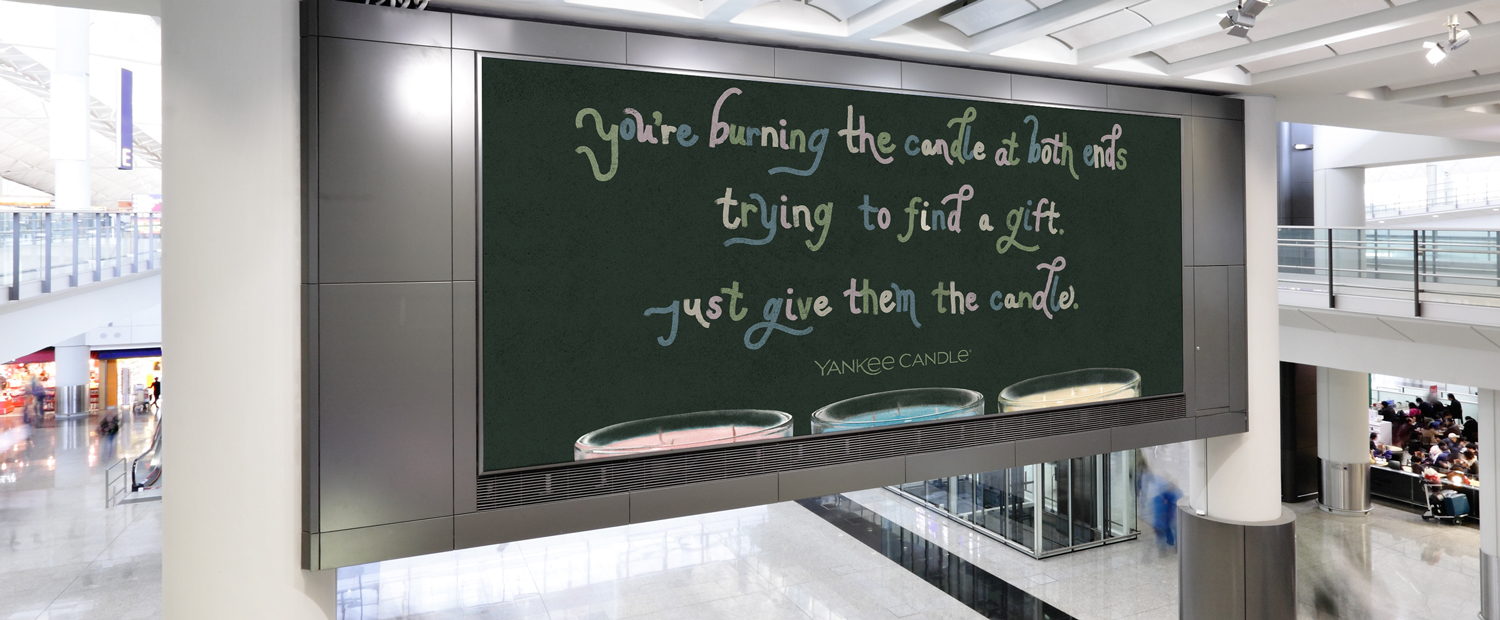 you're burning the candle at both ends
trying to find a gift.
just give them the candle.
YANKEE CANDLE®
E